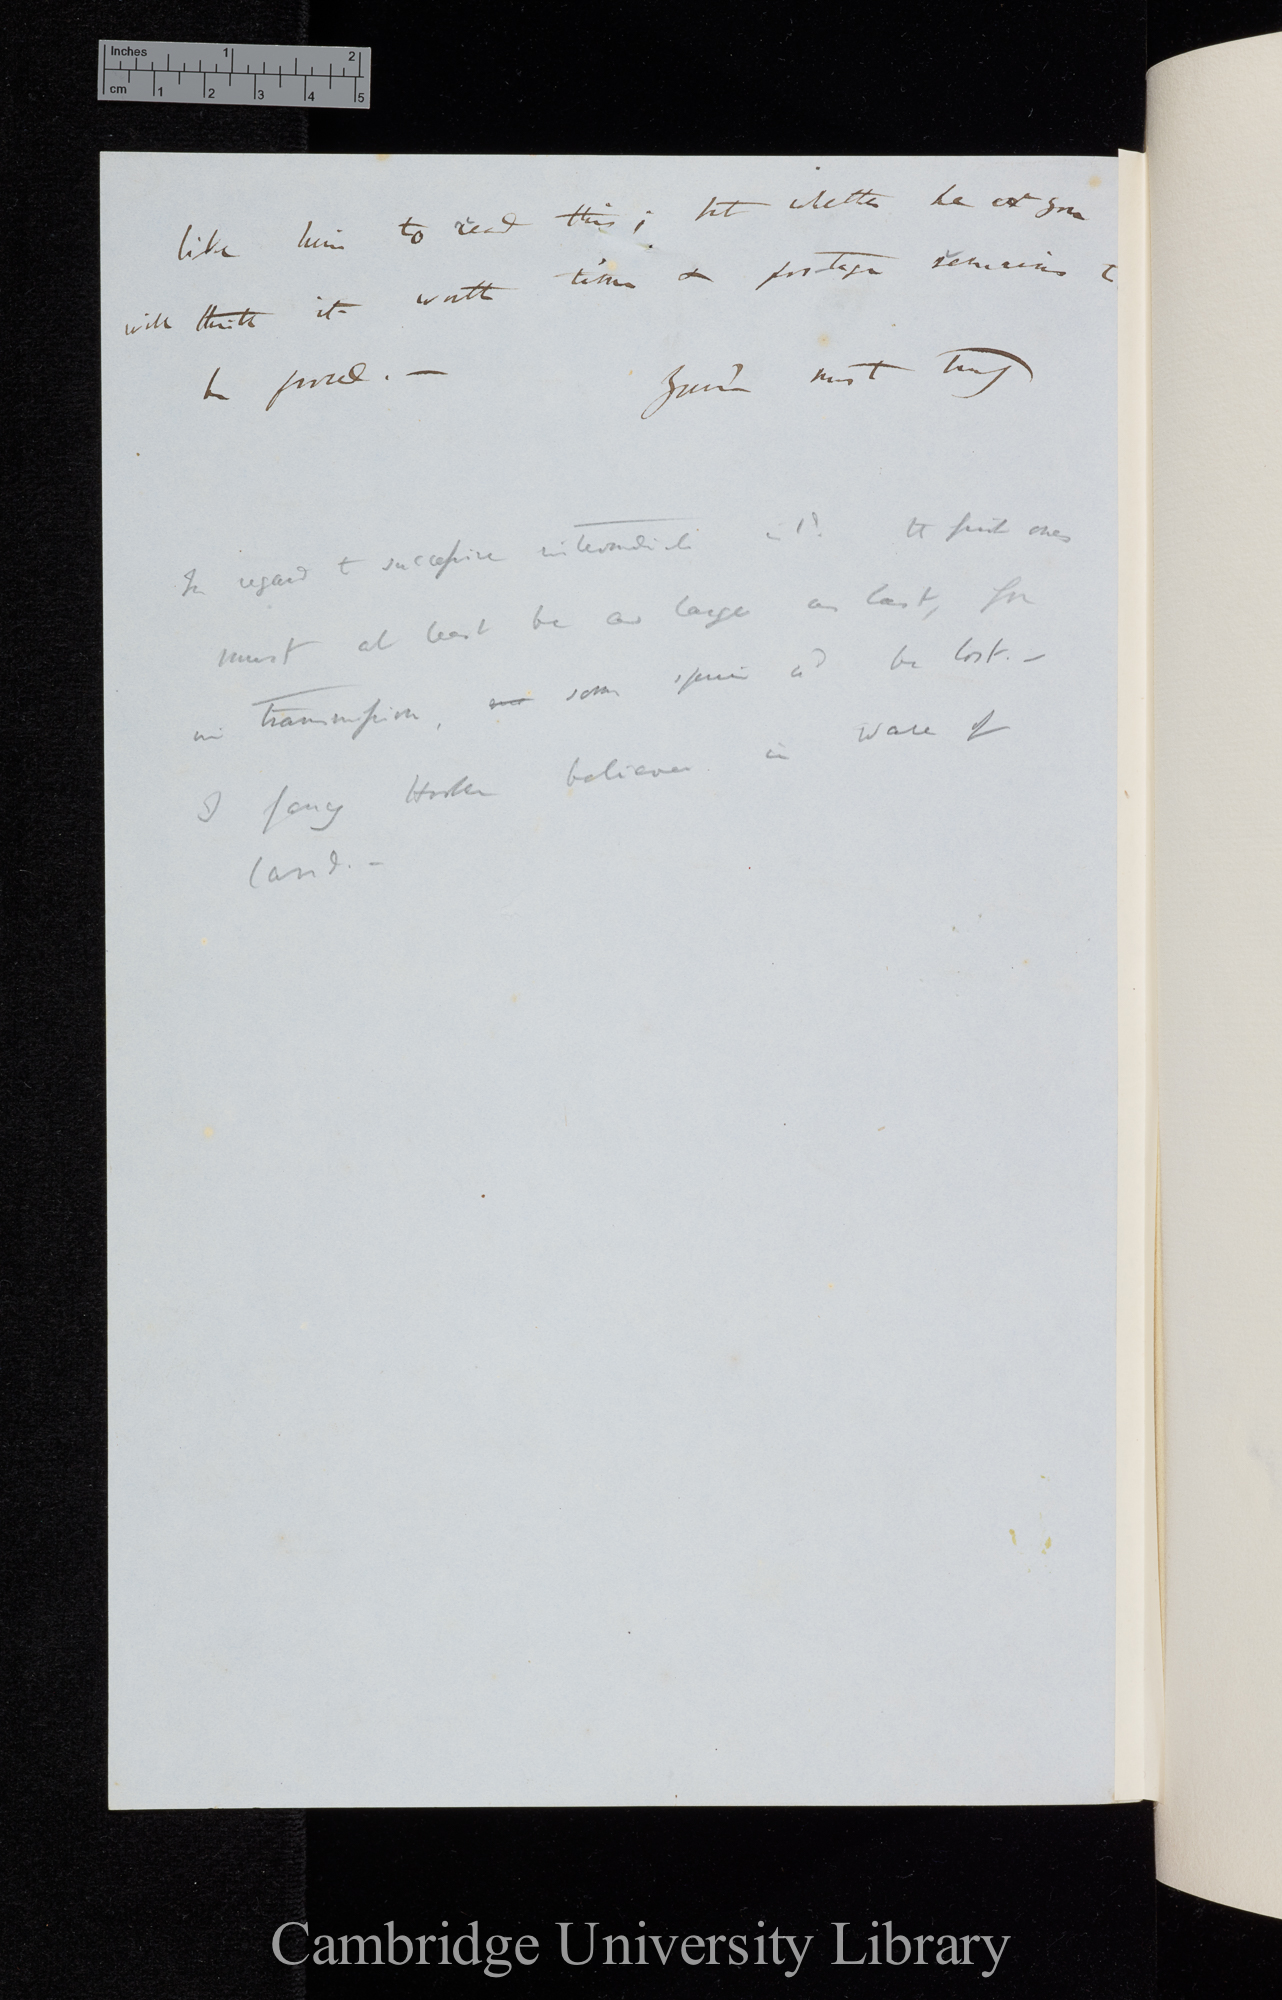 Inches 1 2
cm 1 2 3 4 5
like him to read this; but whether he or you
will think it worth time & postage remains to
be proved. — Yours most truly
In regard to successive intermediate isld. the first ones
must at least be as large as last, for
in transmission, some species wd be lost. —
I fancy Hooker believes in wave of
land. —
Cambridge University Library